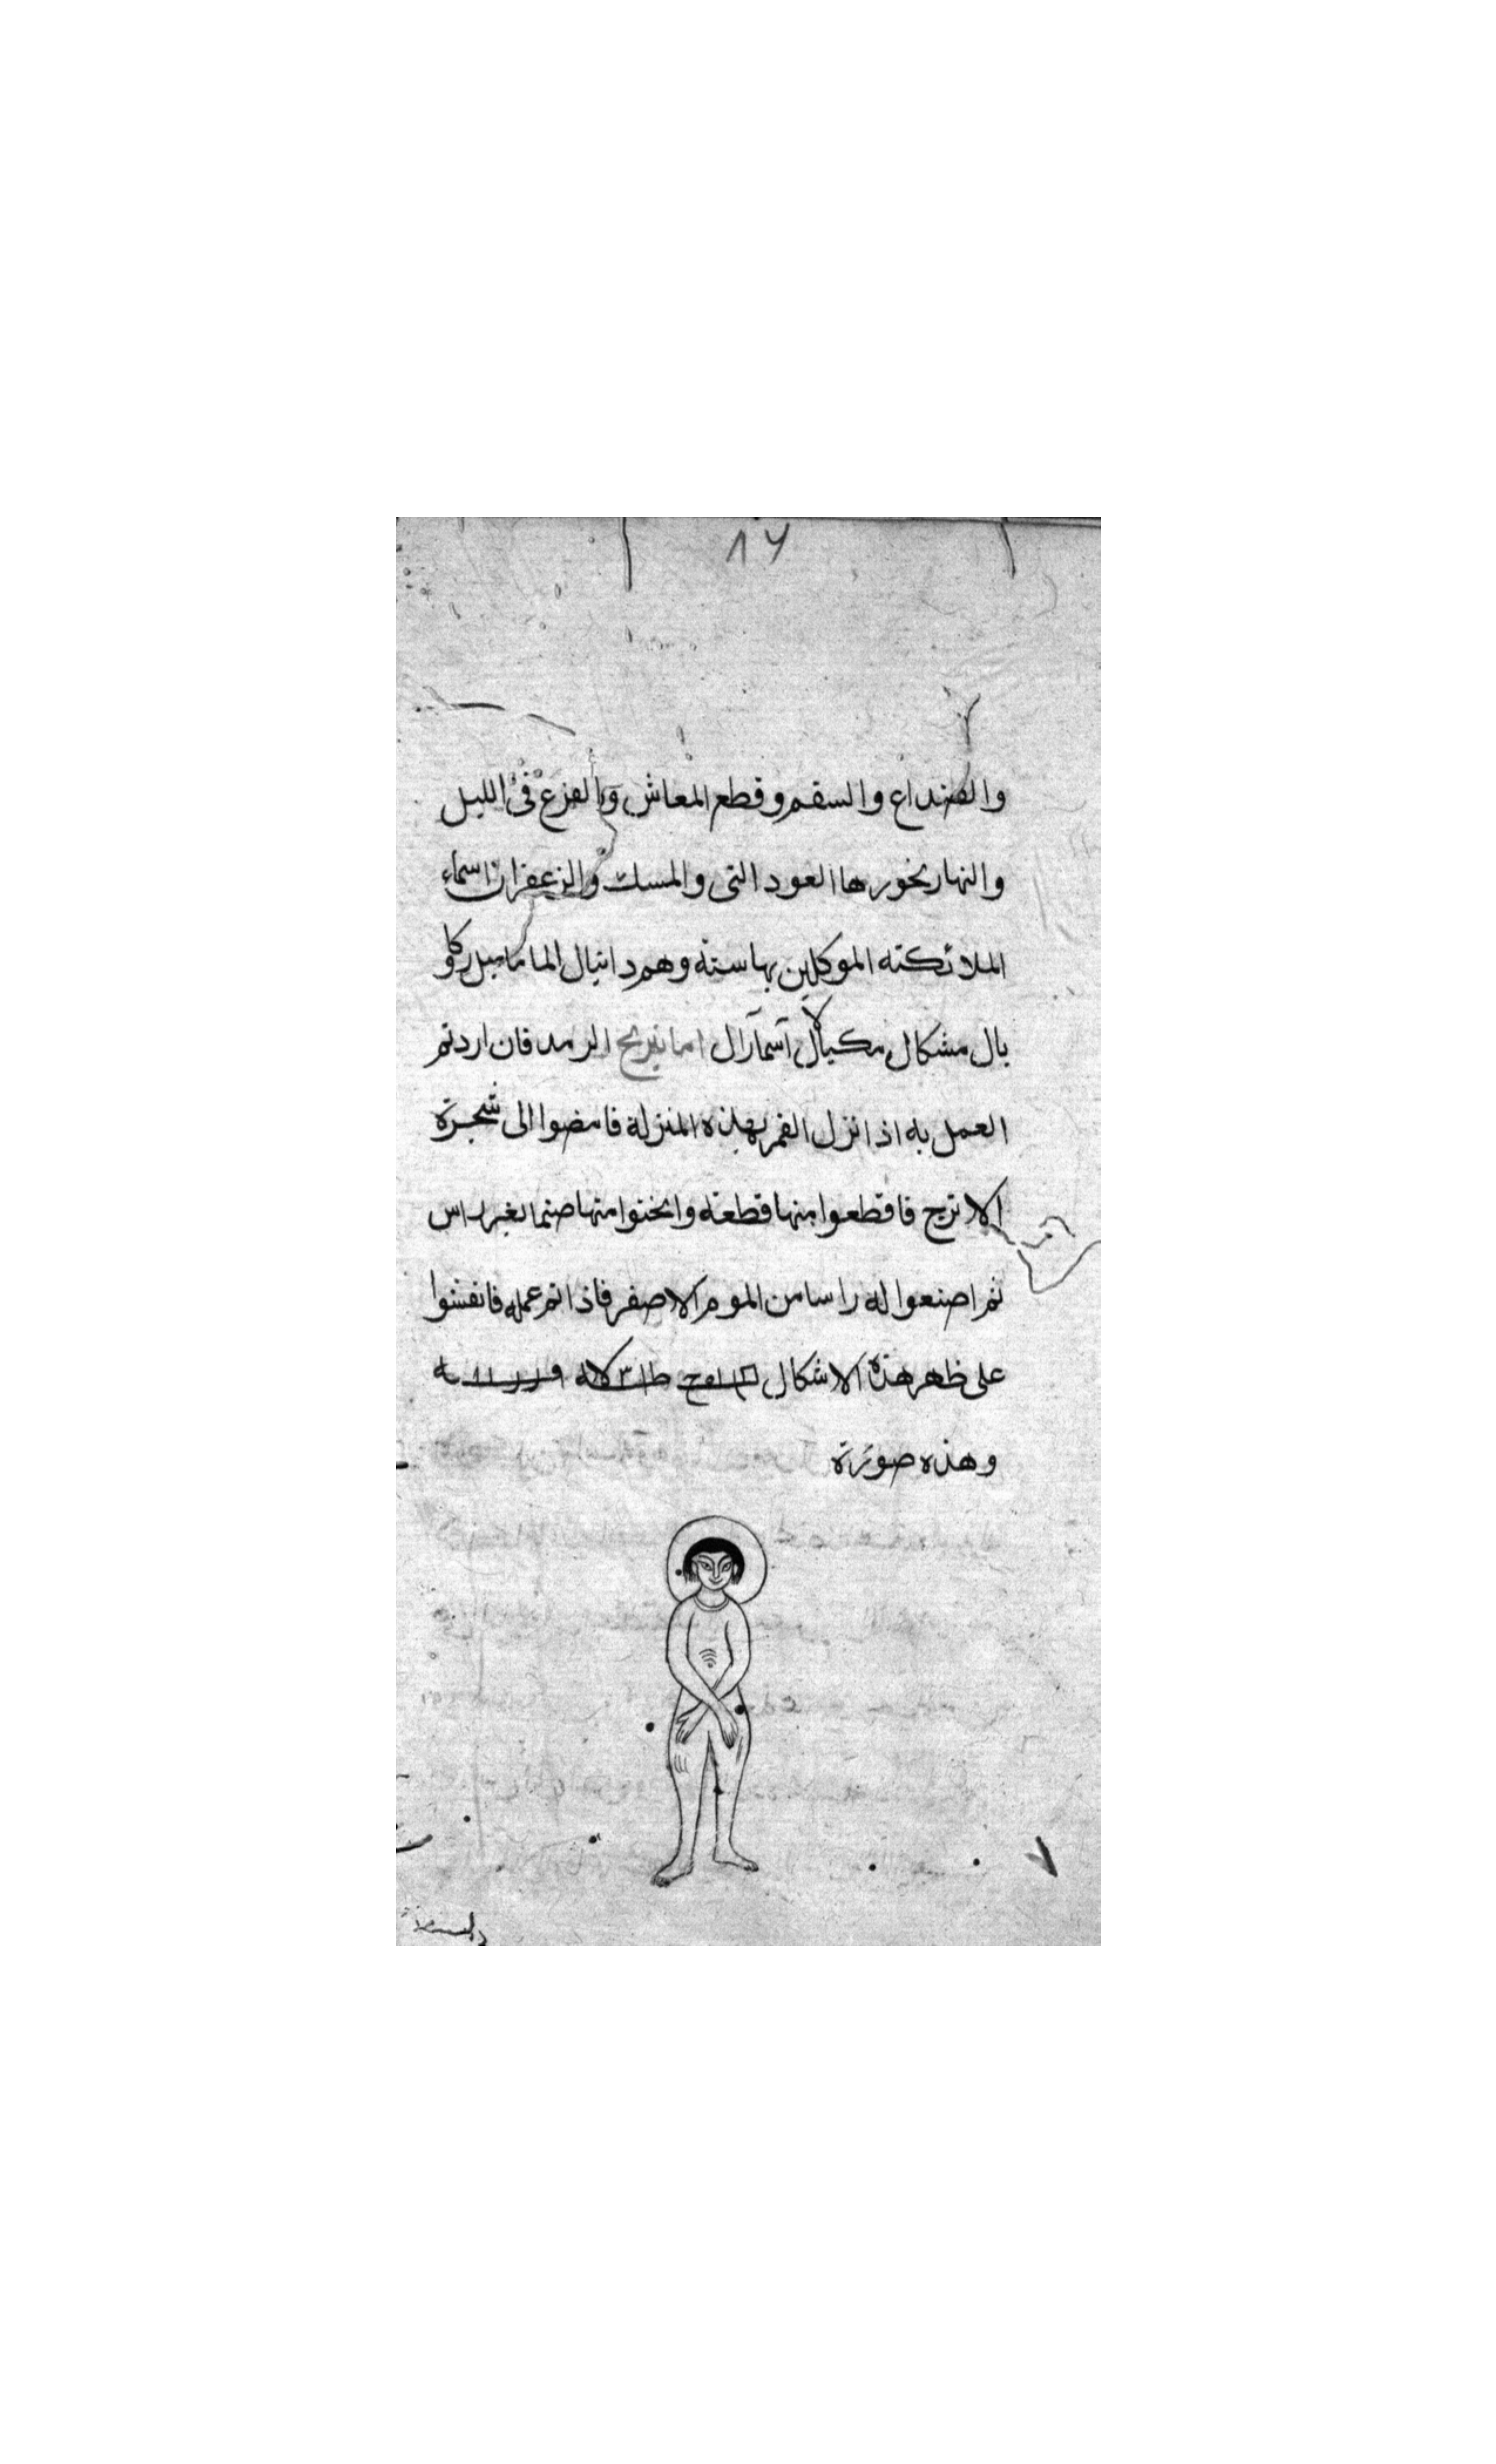 ٨٧
والصداع والسقم وقطع المعاش والفزع في الليل
والنهار بخورها العود التى والمسك والزعفران اسماء
الملائكته الموكلين بها ستة وهم دانيال
يال مشكال مكيال اسمارال اما نيرنج الرمد فان اردتم
العمل به اذا نزل القمر بهذه المنزلة فامضوا الى شجرة
الاترج فاقطعوا منها قطعة وانحتوا منها صنما بغير راس
ثم اصنعوا له راسا من الموم الاصفر فاذا تم عمله فانقشوا
على ظهر هذه الاشكال
وهذه صورته